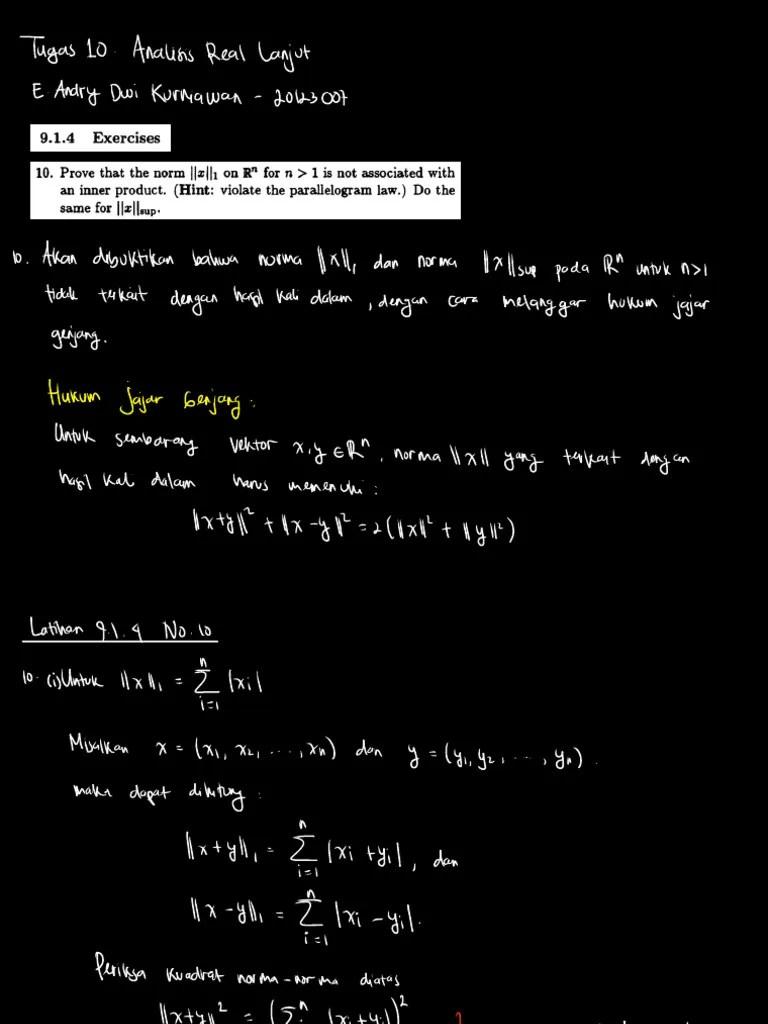 Tugas 10. Analisis Real Lanjut
E Andry Dwi Kurniawan - 20123007
9.1.4 Exercises
10. Prove that the norm ||x||₁ on ℝⁿ for n > 1 is not associated with
an inner product. (Hint: violate the parallelogram law.) Do the
same for ||x||sup.
10. Akan dibuktikan bahwa norma ||x||₁ dan norma ||x||sup pada ℝⁿ untuk n>1
tidak terkait dengan hasil kali dalam, dengan cara melanggar hukum jajar
genjang.
Hukum jajar genjang:
Untuk sembarang vektor x,y ∈ ℝⁿ, norma ||x|| yang terkait dengan
hasil kali dalam harus memenuhi:
||x+y||² + ||x-y||² = 2(||x||² + ||y||²)
Latihan 9.1.4 No. 10
10. (i) Untuk ||x||₁ = ∑ᵢ₌₁ⁿ |xᵢ|
Misalkan x = (x₁, x₂, ..., xₙ) dan y = (y₁, y₂, ..., yₙ).
maka dapat dihitung:
||x+y||₁ = ∑ᵢ₌₁ⁿ |xᵢ + yᵢ|, dan
||x-y||₁ = ∑ᵢ₌₁ⁿ |xᵢ - yᵢ|.
Periksa kuadrat norma-norma diatas
||x+y||² = (∑ⁿ |xᵢ + yᵢ|)²